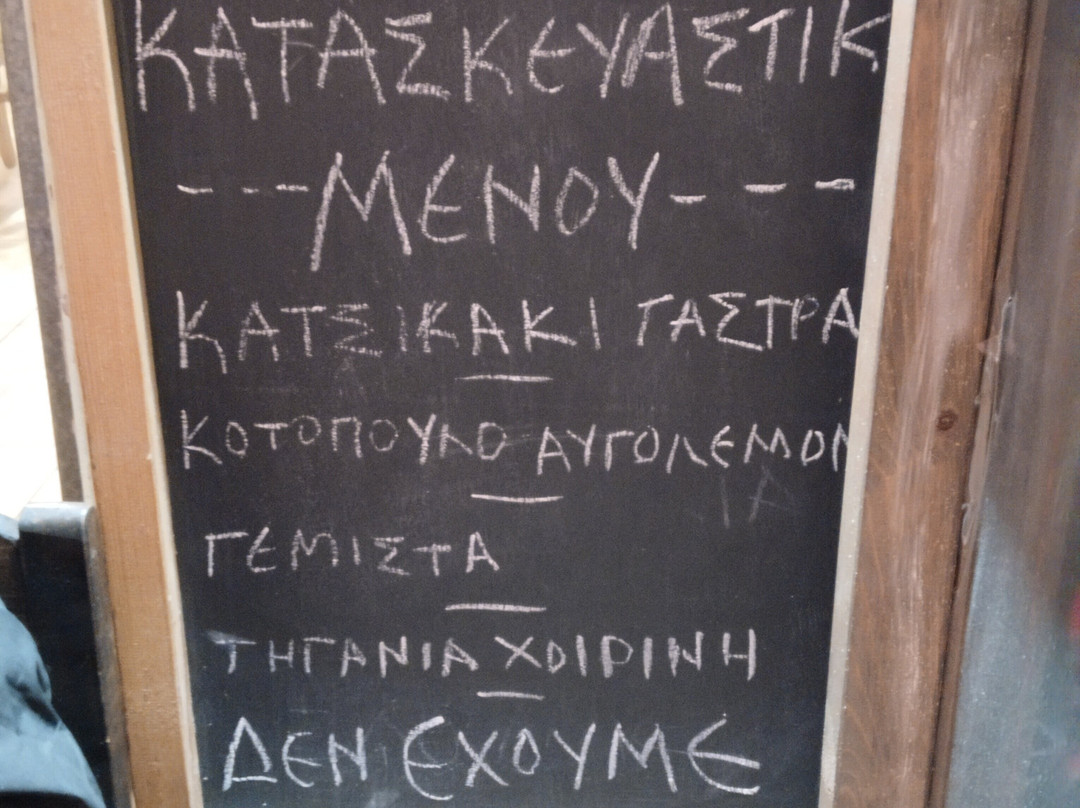 ΚΑΤΑΣΚΕΥΑΣΤΙΚ
---ΜΕΝΟΥ---
ΚΑΤΣΙΚΑΚΙ ΓΑΣΤΡΑ
ΚΟΤΟΠΟΥΛΟ ΑΥΓΟΛΕΜΟΝ
ΓΕΜΙΣΤΑ
ΤΗΓΑΝΙΑ ΧΟΙΡΙΝΗ
ΔΕΝ ΕΧΟΥΜΕ